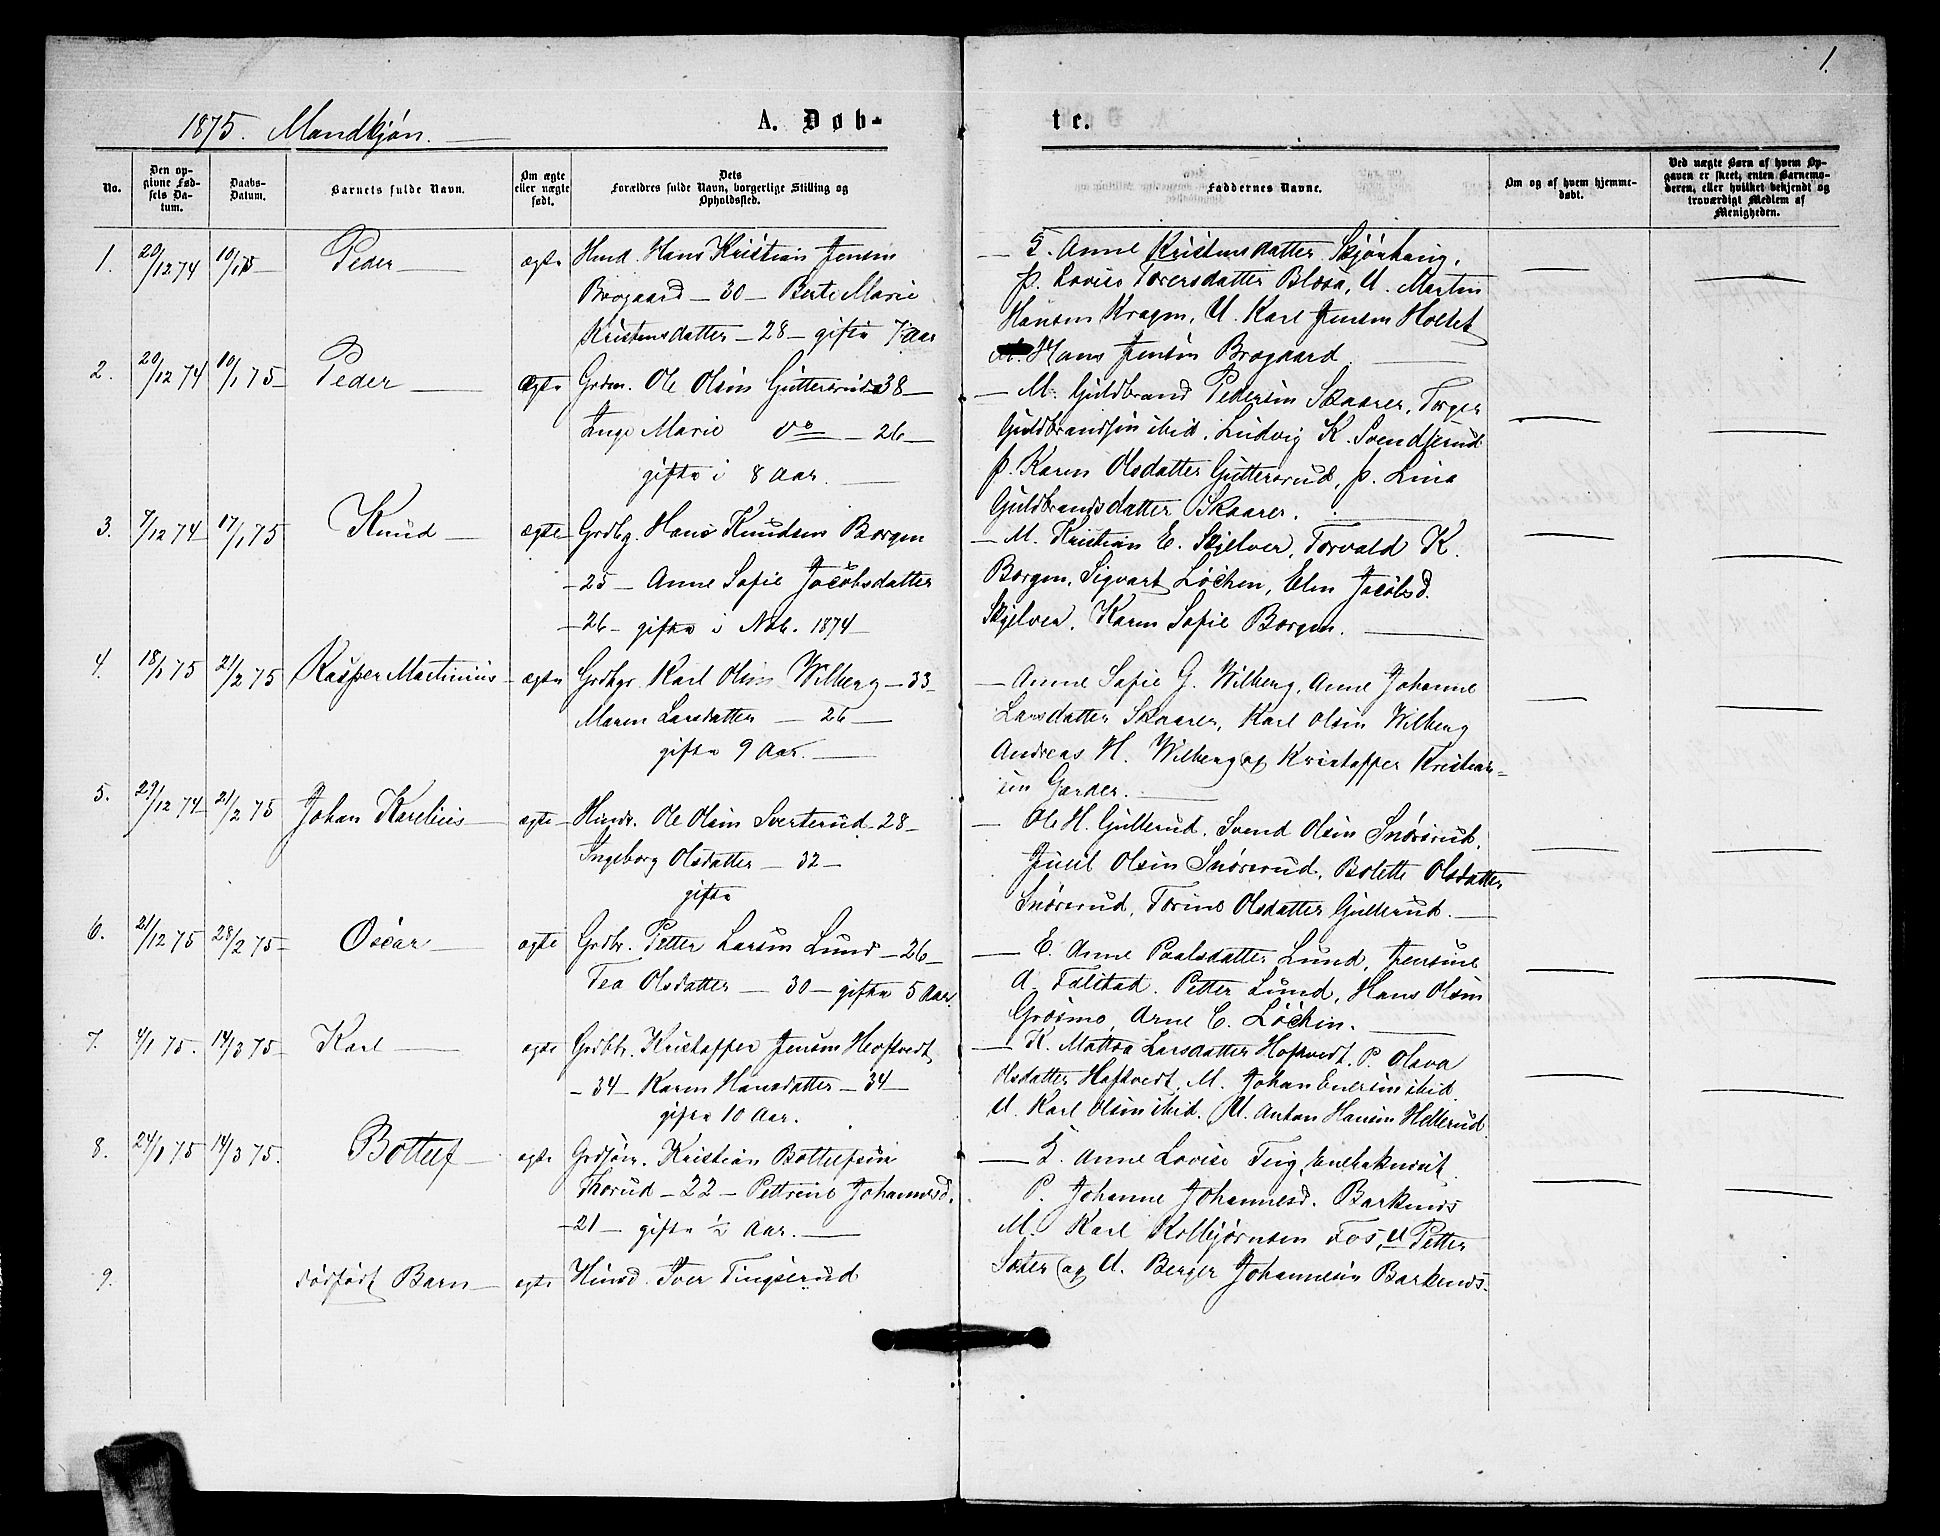 1.
1875. Mandkjøn.
A. Døb-
te.
No.
Den op-
givne Fød-
sels Da-
tum.
Daabs-
Datum.
Barnets fulde Navn.
Om ægte
eller uægte
født.
Dets
Forældres fulde Navn, borgerlige Stilling og
Opholdssted.
Faddernes Navne.
Om og af hvem hjemme-
døbt.
Ved uægte Børn af hvem Op-
gaven er skeet, enten Barnemo-
deren, eller hvilket bekjendt og
troværdigt Medlem af
Menigheden.
1. 20/12 74 10/1 75 Peder ægte Hmd. Hans Kristian Jensen
Brogaard - 30 - Berte Marie
Kristensdatter - 28 - gifte 7 Aar
Anne Kristensdatter Skjønhaug,
p. Lovise Torersdatter U. Martin
Hansen Kragen, U. Karl Jensen Holtet
Hans Jensen Brogaard
2. 20/12 74 10/1 75 Peder ægte Grdm. Ole Olsen Guttersrud 38
Inge Marie Do - 26
gifte i 8 Aar.
M. Guldbrand Pedersen Skaarer, Torger
Guldbrandsen ibid, Ludvig K. Svendserud
p. Karen Olsdatter Guttersrud, p. Lina
Guldbrandsdatter Skaarer.
3. 7/12 74 17/1 75 Knud ægte Grdbg. Hans Knudsen Borgen
- 25 - Anne Sofie Jacobsdatter
- 26 - gifte i Nob. 1874
M. Kristian E. Skjelver, Torvald K.
Borgen, Sigvart Løchen, Elen Jacobsd.
Skjelver, Karen Sofie Borgen.
4. 18/1 75 21/2 75 Kasper Martinius ægte Grdbgr. Karl Olsen Wilberg - 33
Maren Larsdatter - 26
gifte 9 Aar.
Anne Sofie G. Wilberg, Anne Johanne
Larsdatter Skaarer, Karl Olsen Wilberg
Andreas H. Wilberg og Kristoffer Kristian=
sen Garder.
5. 29/12 74 21/2 75 Johan Karelius ægte Ole Olsen Sverterud - 28
Ingeborg Olsdatter - 32
gifte
Ole H. Gullerud, Svend Olsen Snørerud,
Juul Olsen Snørerud, Bolette Olsdatter
Snørerud, Torine Olsdatter Gullerud.
6. 21/12 75 28/2 75 Oscar ægte Grdbr. Petter Larsen Lund - 26
Tea Olsdatter - 30 - gifte 5 Aar.
E. Anne Paalsdatter Lund, Jensine
A. Falstad. Petter Lund, Hans Olsen
Grøsmo, Arne C. Løchen.
7. 4/1 75. 14/3 75 Karl ægte Grdbr. Kristoffer Jensen Hoftvedt
- 34 - Karen Hansdatter - 34
gifte 10 Aar.
K. Mattea Larsdatter Hoftvedt, P. Olava
Olsdatter Hoftvedt, M. Johan Enersen ibid
U. Karl Olsen ibid. U. Anton Hansen Hellerud.
8. 24/1 75 14/3 75. Bottolf ægte Kristian Bottolfsen
Thorud - 22 - Pettrine Johannesd.
- 21 - gifte ½ Aar.
Anne Lovise
P. Johanne Johannesd. Barknes
M. Karl Kolbjørnsen Fos, U Petter
Sæter og U. Berger Johannesen Barknes.
9. dødfødt Barn ægte Husd. Iver Tingserud